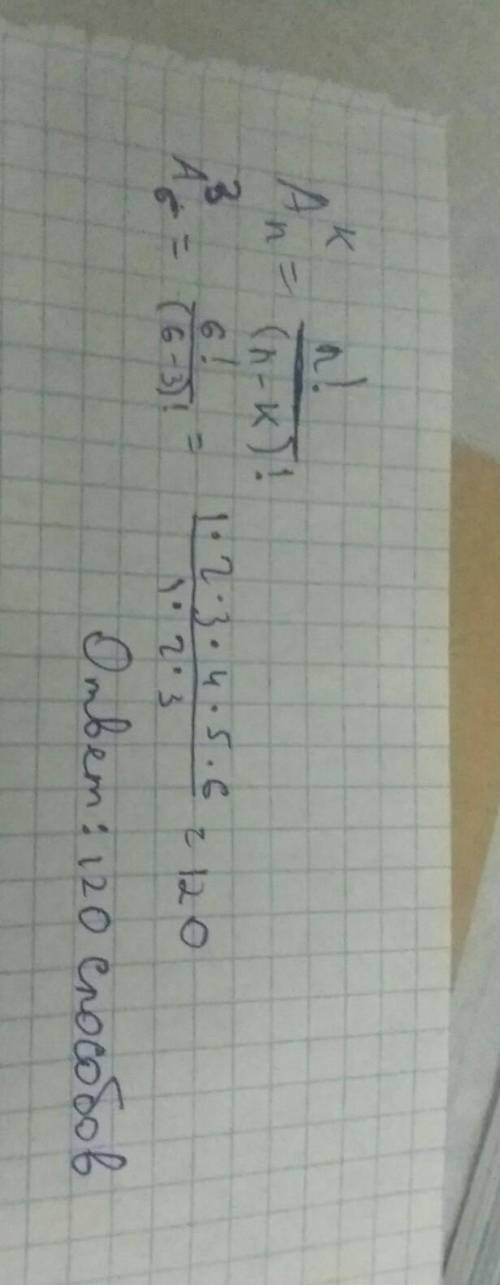 A_n^k = n! / (n-k)!
A_6^3 = 6! / (6-3)! = 1·2·3·4·5·6 / 1·2·3 = 120
Ответ: 120 способов